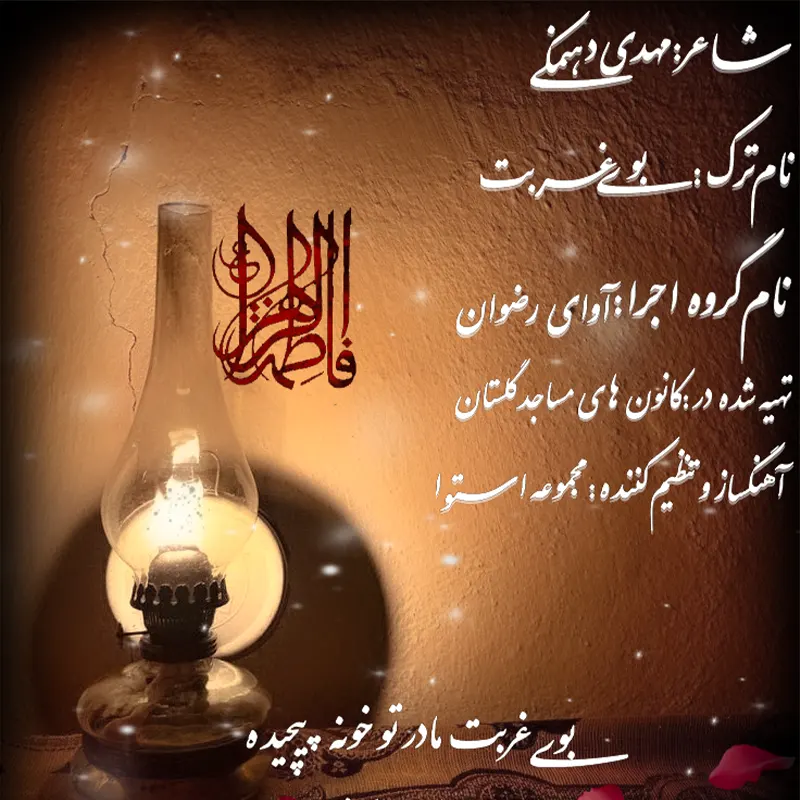 شاعر: مهدی دهمنکی
نام ترک: بوی غربت
نام گروه اجرا: آوای رضوان
فاطمه الزهرا
تهیه شده در: کانون های مساجد گلستان
آهنگساز و تنظیم کننده: مجموعه استوا
بوی غربت مادر تو خونه پیچیده